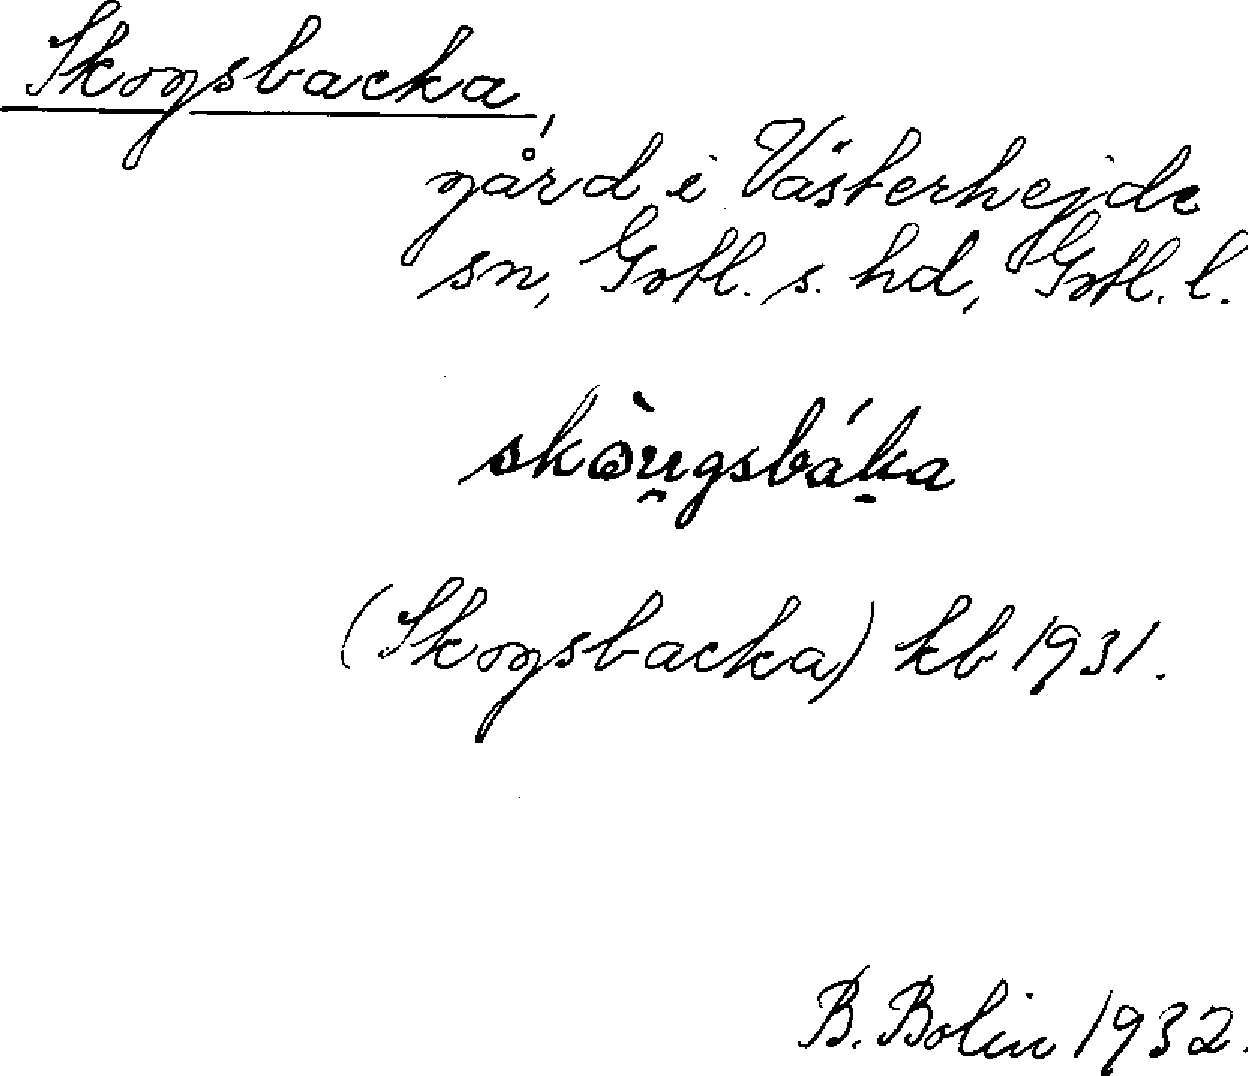 Skogsbacka,
gård i Västerhejde
sn, Gotl. s. hd, Gotl. l.
skòu̯gsbáḵa
(Skogsbacka) kb 1931.
B. Bolin 1932.